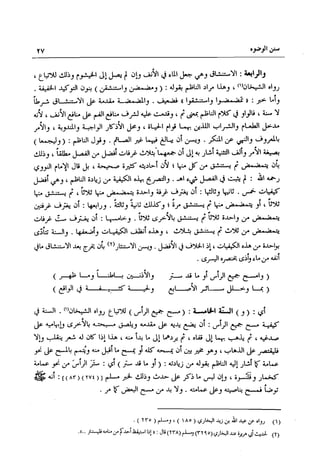 سنن الوضوء
٢٧
والرابعة : الاستنشاق وهي جعل الماء في الأنف وإن لم يصل إلى الخيشوم وذلك للاتباع ،
رواه الشيخان(١)، وهذا مراد الناظم بقوله : (ومضمضن واستنشقن) بنون التوكيد الخفيفة .
وأما خبر : « تمضمضوا واستنشقوا » فضعيف . والمضمضة مقدمة على الاستنشاق شرطاً
لا سنة ، فالواو في كلام الناظم بمعنى ثم ، وقدمت عليه لشرف منافع الفم على منافع الأنف ، لأنه
مدخل الطعام والشراب اللذين بهما قوام الحياة ، وعلى الأذكار الواجبة والمندوبة ، والأمر
بالمعروف والنهي عن المنكر . ويسن أن يبالغ فيهما غير الصائم . وقول الناظم : (وليجمعا)
بصيغة الأمر وألف التثنية أشار به إلى أن جمعهما بثلاث غرفات أفضل من الفصل مطلقاً ، وذلك
بأن يتمضمض ثم يستنشق من كل منها ؛ لأن أحاديثه كثيرة صحيحة ، بل قال الإمام النووي
رحمه الله : لم يثبت في الفصل شيء اهـ . والتصريح بهذه الكيفية من زيادة الناظم ، وهي أفضل
كيفيات خمس . ثانيها وثالثها : أن يغترف غرفة واحدة يتمضمض منها ثلاثاً ، ثم يستنشق منها
ثلاثاً ، أو يتمضمض منها ثم يستنشق مرة ؛ وكذلك ثانية وثالثة . ورابعها : أن يغترف غرفتين
يتمضمض من واحدة ثلاثاً ثم يستنشق بالأخرى ثلاثاً . وخامسها : أن يغترف ست غرفات
يتمضمض من ثلاث ثم يستنشق بثلاث ، وهذه أنظف الكيفيات وأضعفها . والسنة تتأدى
بواحدة من هذه الكيفيات ، إذ الخلاف في الأفضل . ويسن الاستنثار(٢) بأن يخرج بعد الاستنشاق ما في
أنفه من ماء وأذى بخنصره اليسرى .
( وامسح جميع الرأس أو ما قد ستر والأذنين باطناً وما ظهر )
( بما وخلل سائر الأصابع ولحية كثيفة في الواقع )
أي : ( و ) السنة الخامسة : ( مسح جميع الرأس ) للاتباع رواه الشيخان(١) . السنة في
كيفية مسح جميع الرأس : أن يضع يديه على مقدمه ويلصق مسبحته بالأخرى وإبهاميه على
صدغيه ، ثم يذهب بهما إلى قفاه ، ثم يردهما إلى ما بدأ منه ، هذا إذا كان له شعر ينقلب وإلا
فليقتصر على الذهاب ، وهو مخير بين أن يمسحه كله أو يمسح ما أقل منه ويتمم بالمسح على نحو
عمامة كما أشار إليه الناظم بقوله من زيادته : ( أو ما قد ستر ) أي : ستر الرأس من نحو عمامة
كخمار وقلنسوة ، وإن ليس ما ذكر على حدث وذلك لخبر مسلم (٢٧٤) (٨٣) : أنه ﷺ
توضأ فمسح بناصيته وعلى عمامته . ولا بد من مسح البعض كما مر .
(١) رواه عن عبد الله بن زيد البخاري ( ١٨٥ ) ، ومسلم ( ٢٣٥ ) .
(٢) لحديث أبي هريرة عند البخاري (٣٢٩٥) ومسلم (٢٣٨) قال : « إذا استيقظ أحدكم من منامه فليستنثر ...» .